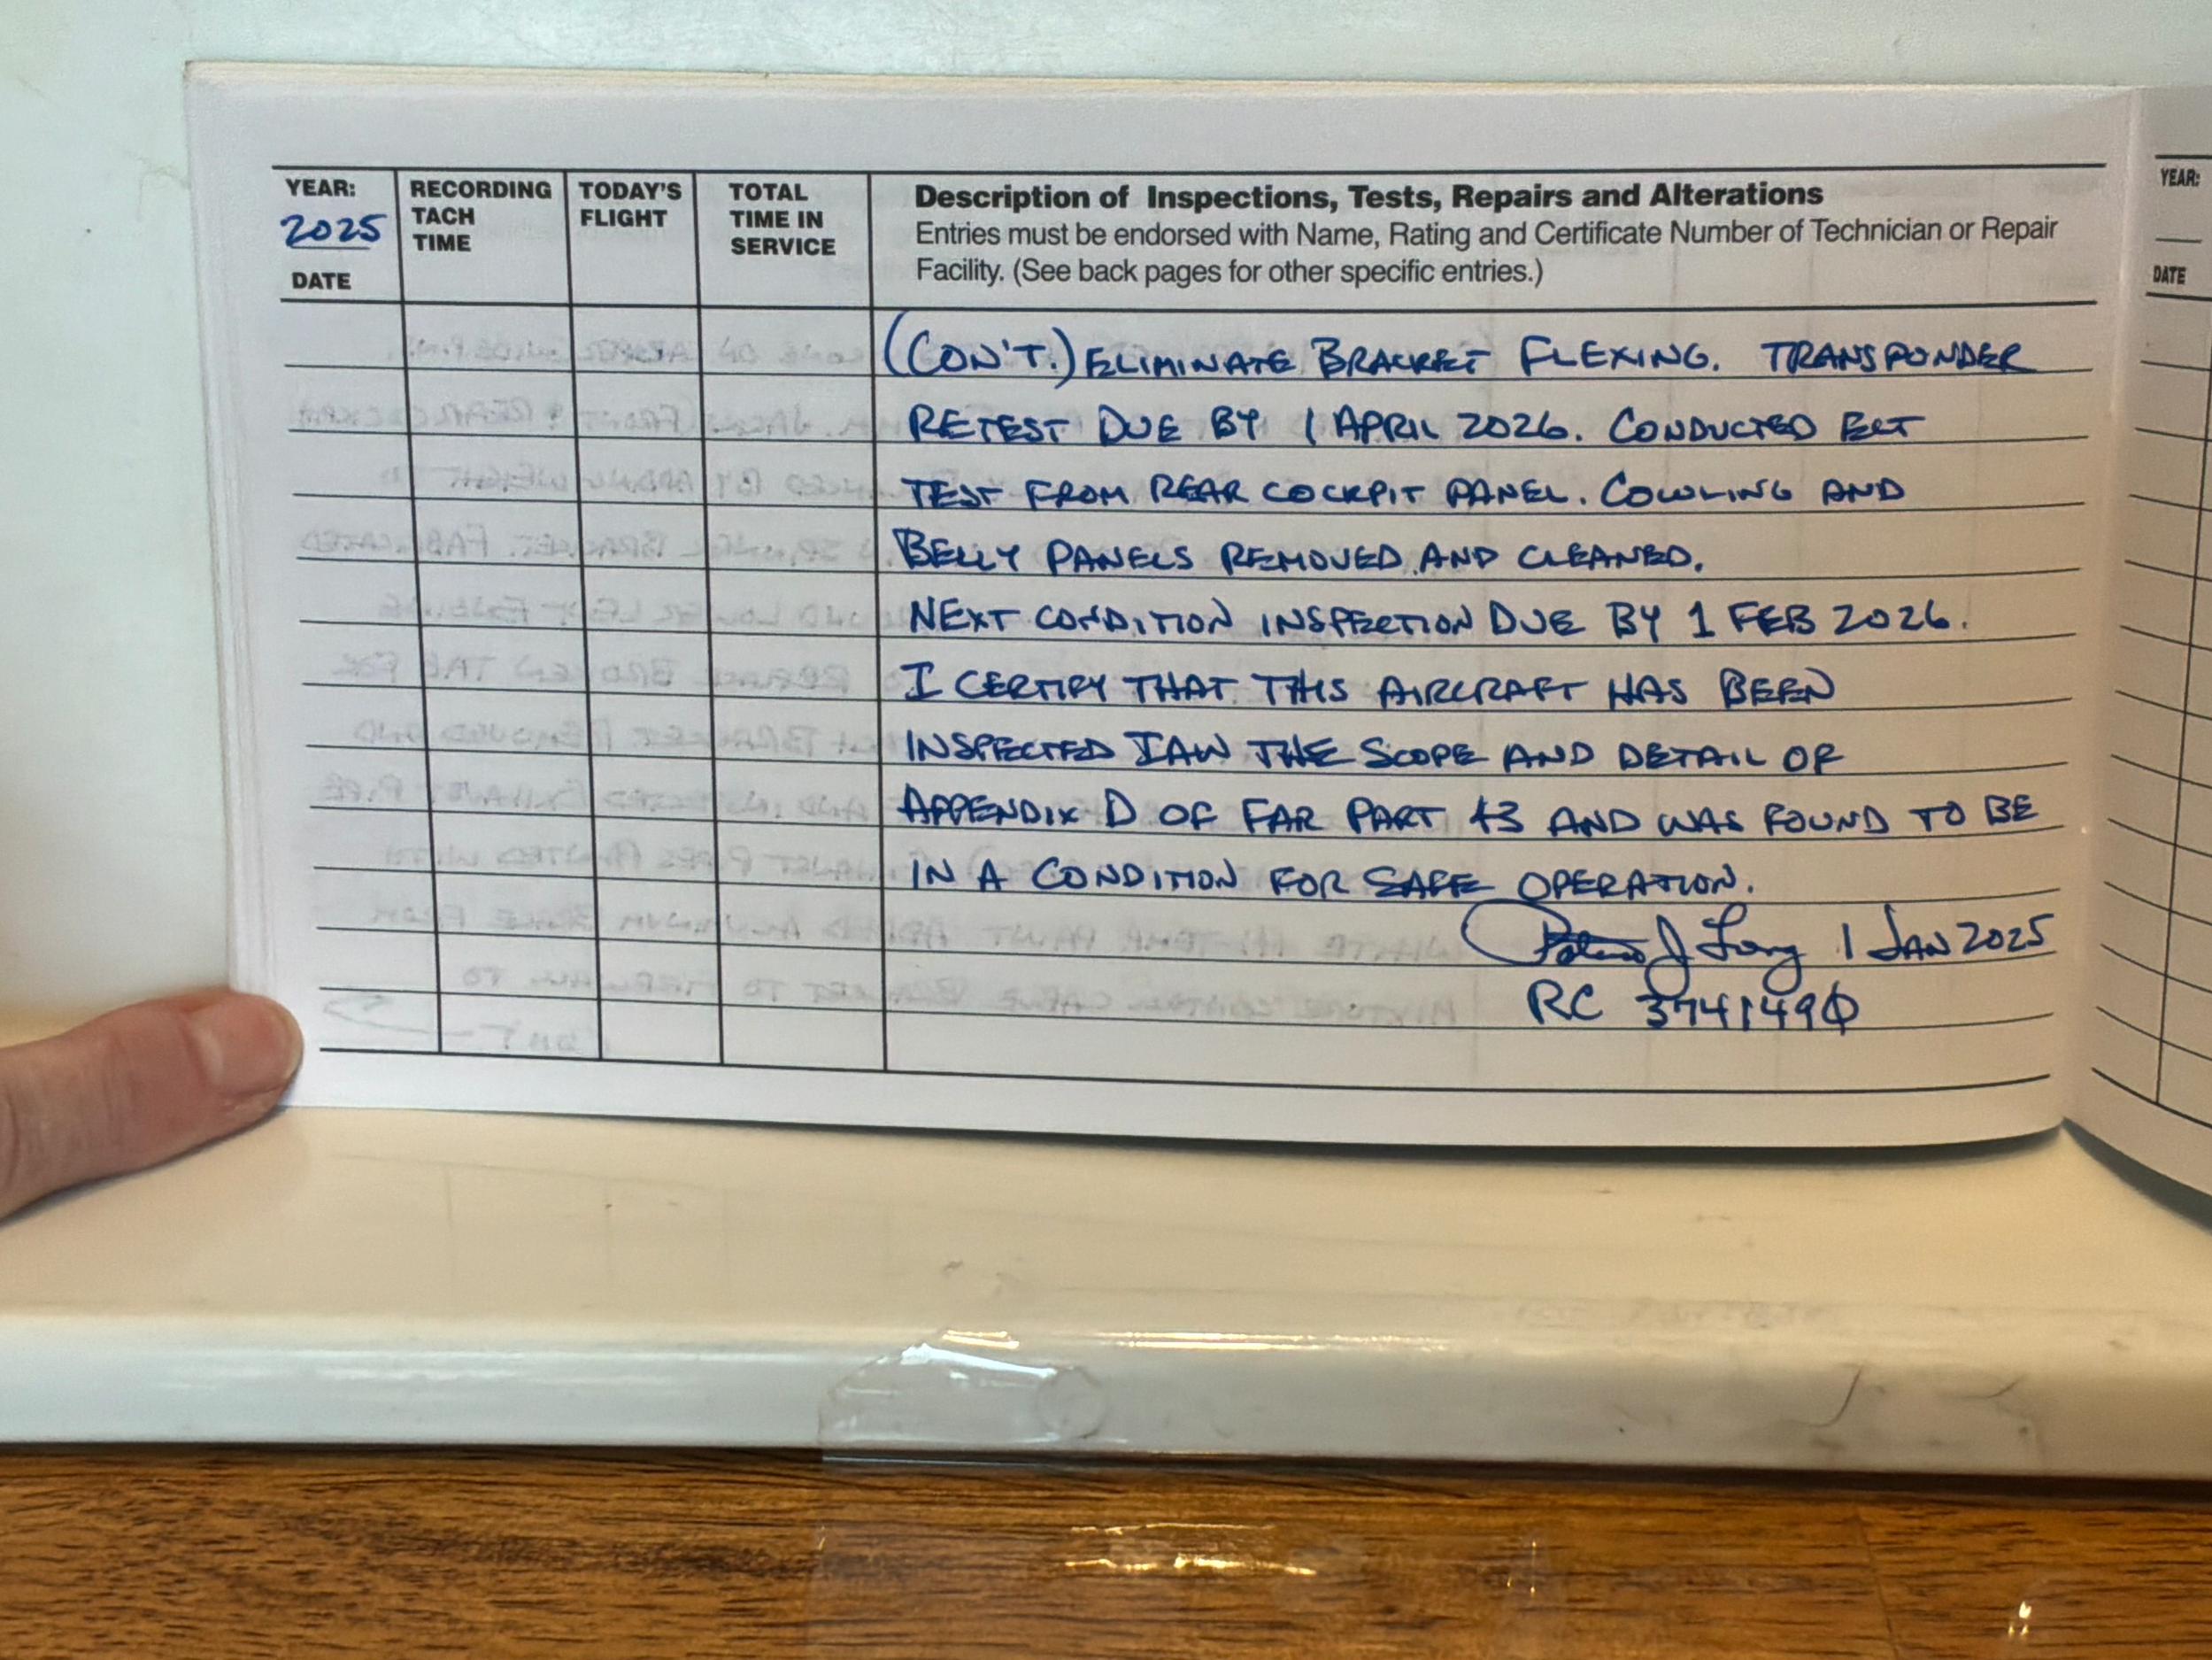 YEAR:
2025
DATE
RECORDING
TACH
TIME
TODAY'S
FLIGHT
TOTAL
TIME IN
SERVICE
Description of Inspections, Tests, Repairs and Alterations
Entries must be endorsed with Name, Rating and Certificate Number of Technician or Repair
Facility. (See back pages for other specific entries.)
(CON'T.) ELIMINATE BRACKET FLEXING. TRANSPONDER
RETEST DUE BY 1 APRIL 2026. CONDUCTED ELT
TEST FROM REAR COCKPIT PANEL. COWLING AND
BELLY PANELS REMOVED AND CLEANED.
NEXT CONDITION INSPECTION DUE BY 1 FEB 2026.
I CERTIFY THAT THIS AIRCRAFT HAS BEEN
INSPECTED IAW THE SCOPE AND DETAIL OF
APPENDIX D OF FAR PART 43 AND WAS FOUND TO BE
IN A CONDITION FOR SAFE OPERATION.
J Long 1 JAN 2025
RC 3741490
YEAR:
DATE